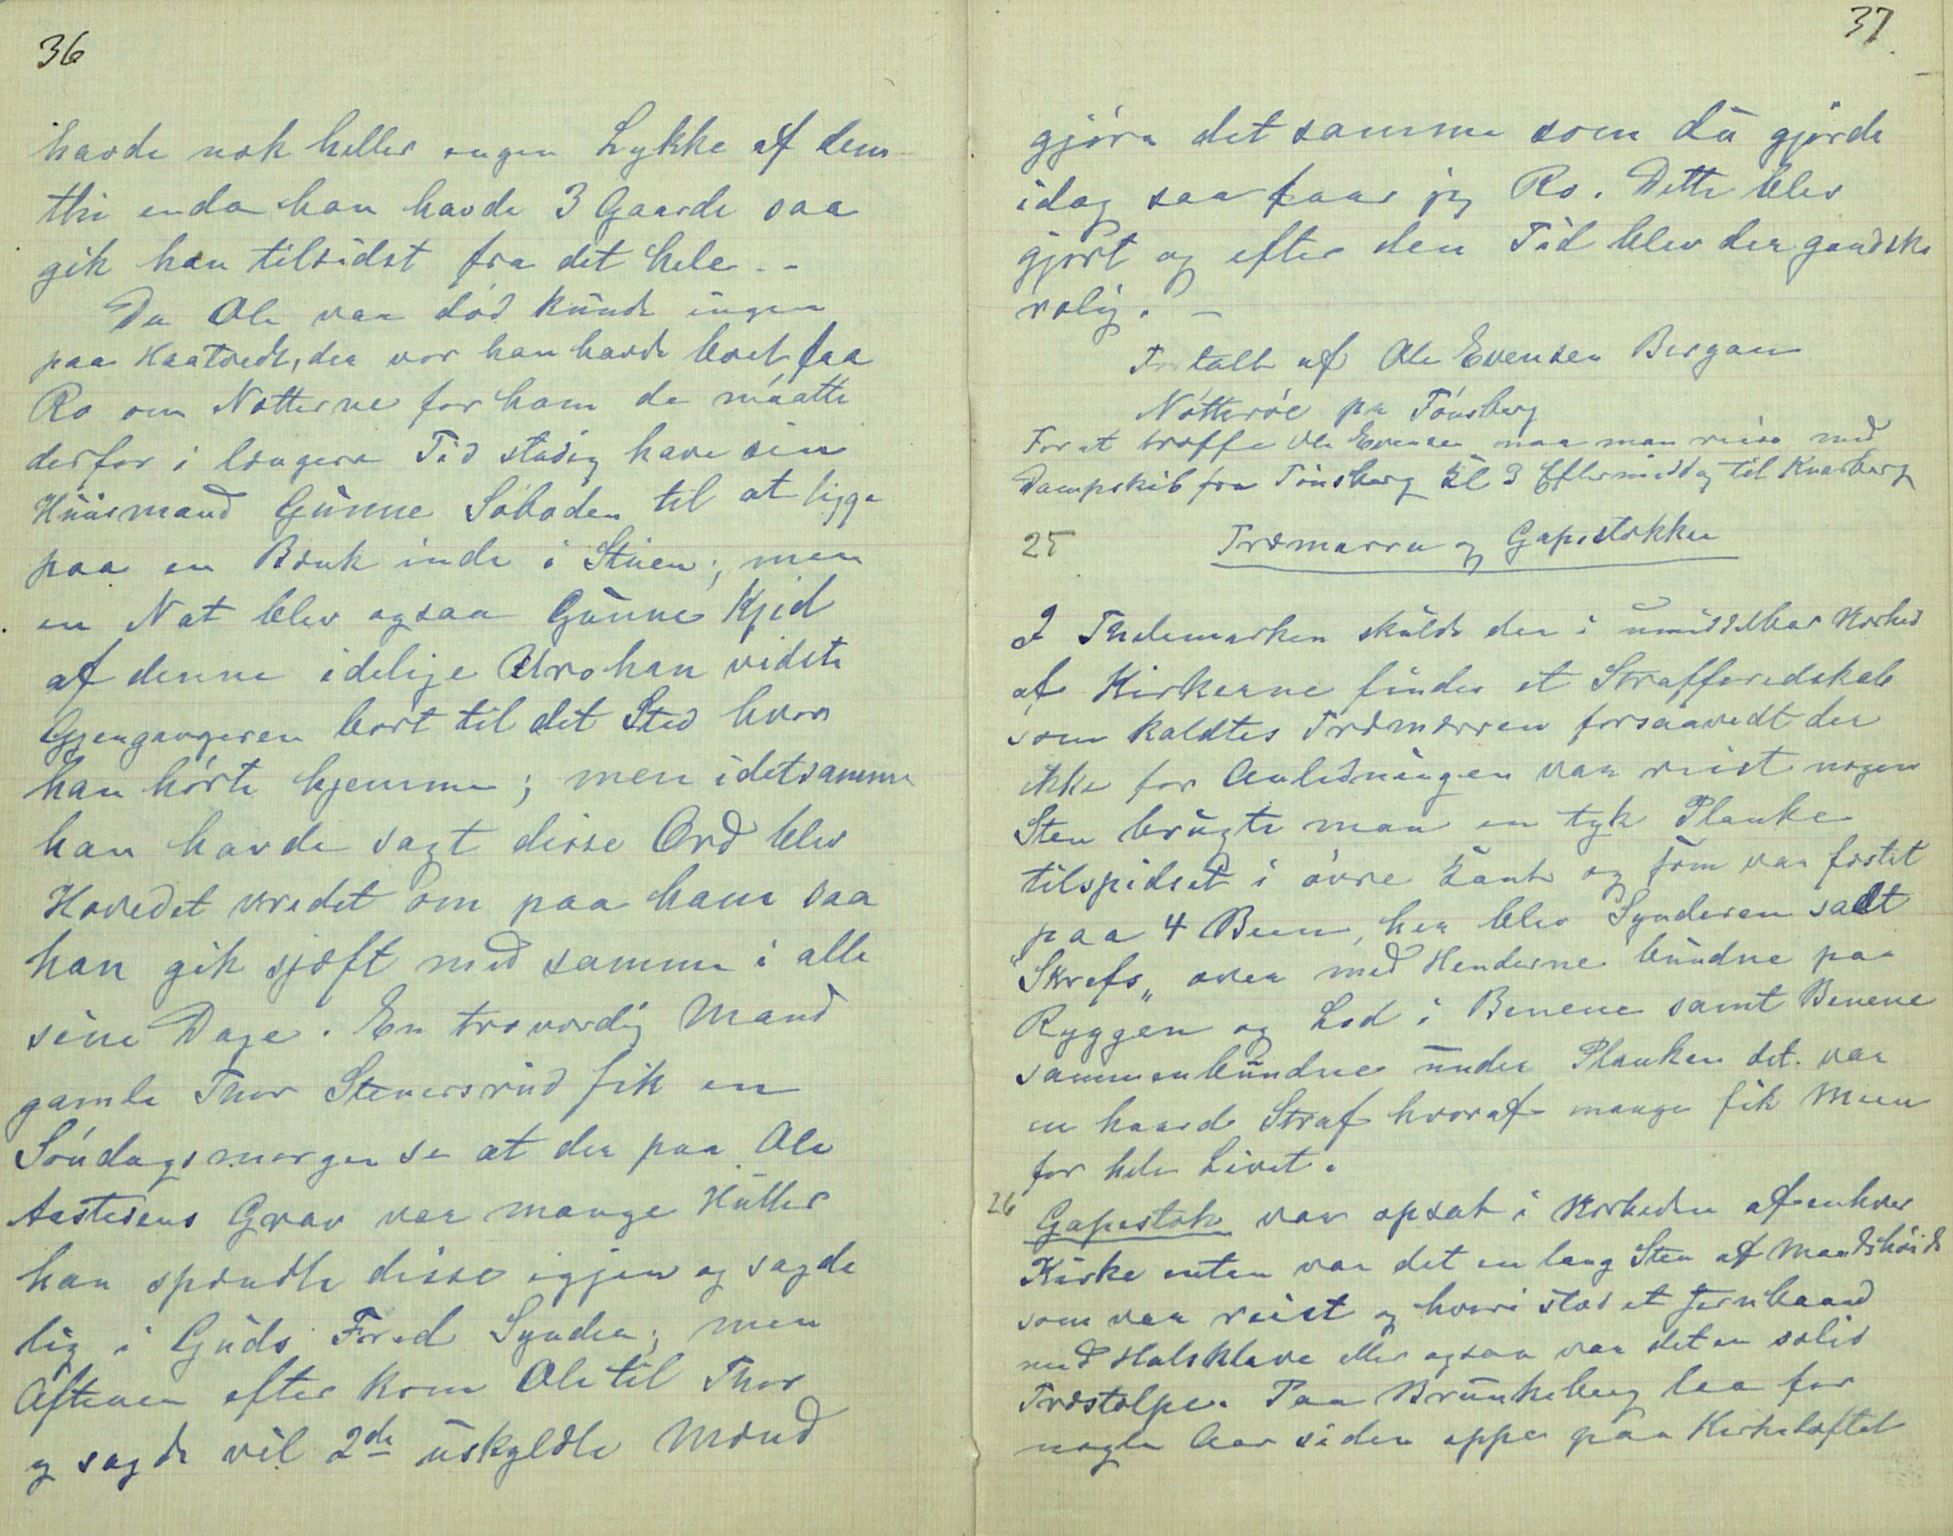 36
havde nok heller ingen Lykke af dem
thi enda han havde 3 Gaarde saa
gik han tilsidst fra det hele. -
Da Ole var død kunde ingen
paa Haatvedt, der vor han havde boet faa
Ro om Nætterne for ham de maatte
derfor i længere Tid stadig have sin
Huusmand Gunne Søboden til at ligge
paa en Bænk inde i Stuen; men
en Nat blev ogsaa Gunne Kjed
af denne idelige Uro han vidste
Gjengangeren bort til det Sted hvor
han hørte hjemme; men idetsamme
han havde sagt disse Ord blev
Hovedet vredet om paa ham saa
han gik sjæft med samme i alle
sine Dage. En troværdig Mand
gamle Thor Stenersrud fik en
Søndagsmorgen se at der paa Ole
Aastesens Grav var mange Huller
han spændte disse igjen og sagde
lig i Guds Fred Synder; men
Aftenen efter kom Ole til Thor
og sagde vil 2de uskyldte Mænd
37
gjøre det samme som du gjorde
idag saa faar jeg Ro. Dette blev
gjort og efter den Tid blev der gandske
rolig. -
Fortalt af Ole Evensen Bergan
Nøtterøe pr Tønsberg
For at træffe Ole Evensen maa man reise med
Dampskib fra Tønsberg Kl 3 Eftermiddag til Knarberg
25 Træmarra og Gapestokken
I Thelemarken skulde der i umiddelbar Nærhed
af Kirkerne findes et Strafferedskab
som kaldtes Træmærren forsaavidt der
ikke for Anledningen var reist nogen
Sten brugte man en tyk Planke
tilspidset i øvre Kant og som var fæstet
paa 4 Been, her blev Synderen sadt
"Skrefs„ over med Henderne bundne paa
Ryggen og Lod i Benene samt Benene
sammenbundne under Planken det var
en haard Straf hvoraf mange fik Meen
for hele Livet.
26 Gapestok var opsat i Nærheden af enhver
Kirke enten var det en lang Sten af Mandshøide
som var reist og hvori stod et Jernbaand
med Halsklave eller ogsaa var det en solid
Træstolpe. Paa Brunkeberg laa for
nogle Aar siden oppe paa Kirkeloftet